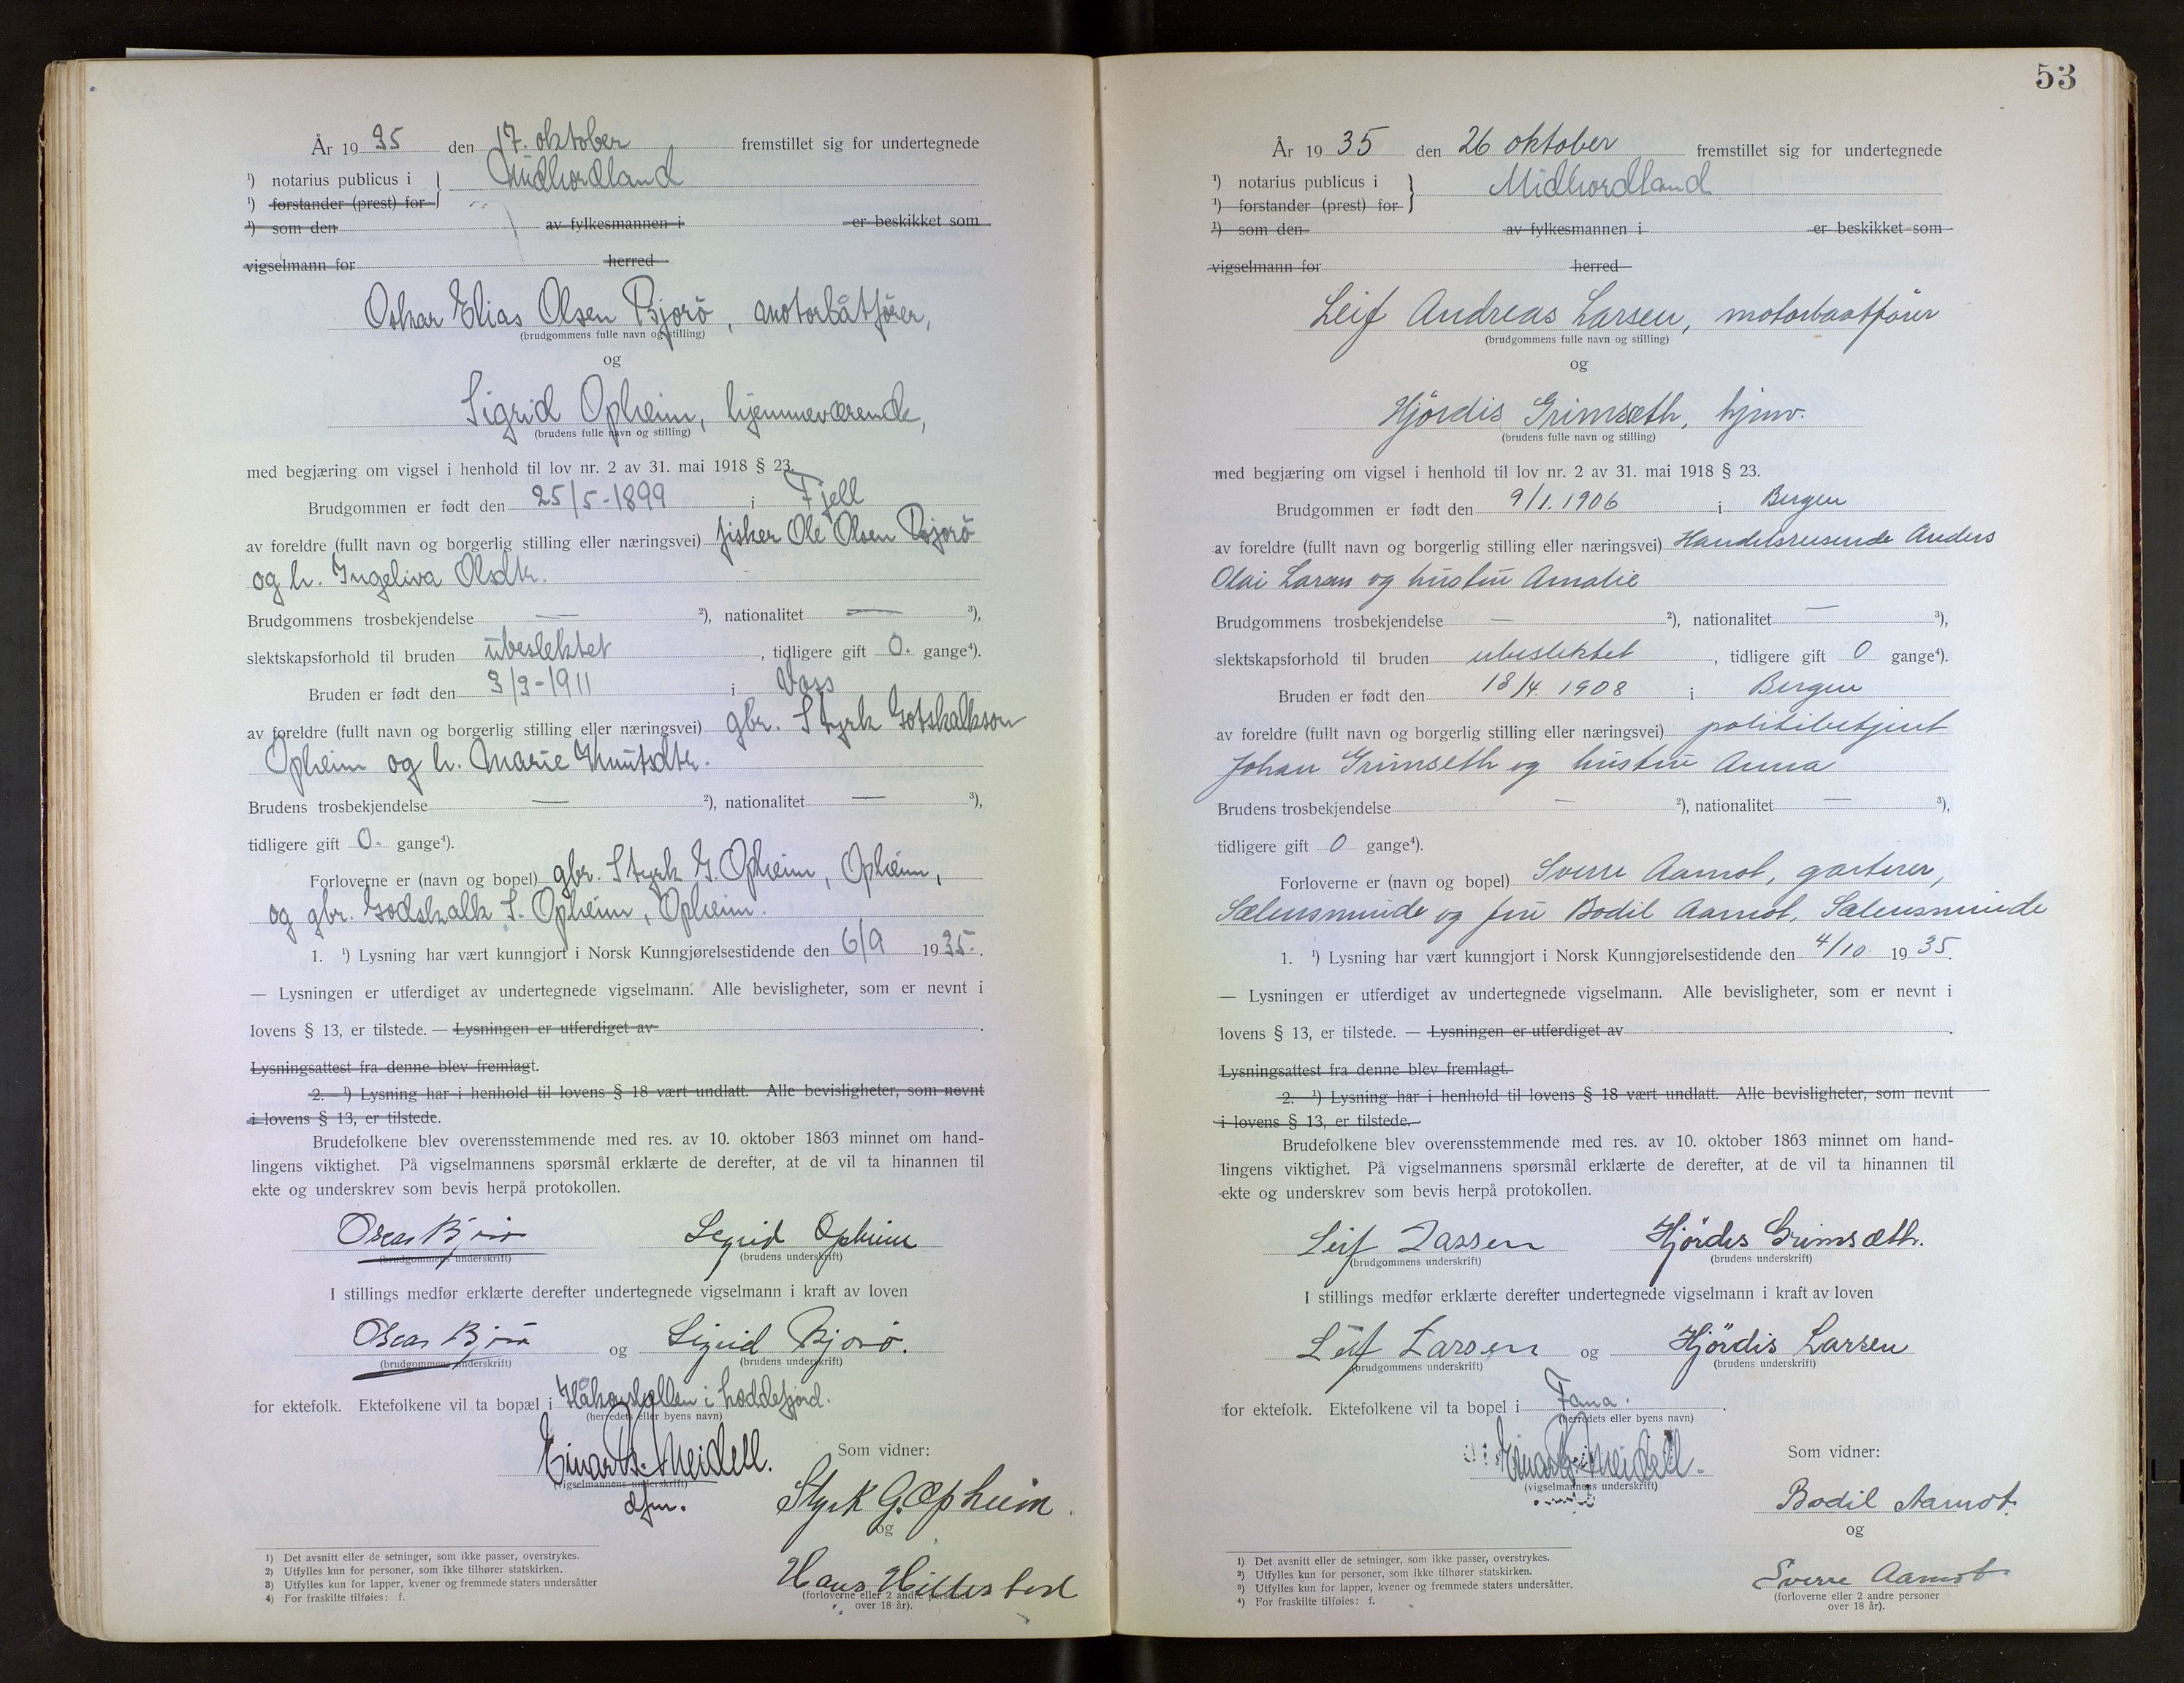 År 1935 den 17. oktober fremstillet sig for undertegnede
¹) notarius publicus i } Midhordland
¹) forstander (prest) for
¹) som den av fylkesmannen i er beskikket som
vigselmann for herred
Oskar Elias Olsen Bjorö, motorbåtfører,
(brudgommens fulle navn og stilling)
og
Sigrid Opheim, hjemmeværende,
(brudens fulle navn og stilling)
med begjæring om vigsel i henhold til lov nr. 2 av 31. mai 1918 § 23.
Brudgommen er født den 25/5-1899 i Fjell
av foreldre (fullt navn og borgerlig stilling eller næringsvei) fisker Ole Olsen Bjorö
og h. Ingeliva Olsdtr.
Brudgommens trosbekjendelse — ²), nationalitet — ³),
slektskapsforhold til bruden ubeslektet, tidligere gift 0. gange⁴).
Bruden er født den 3/3-1911 i Voss
av foreldre (fullt navn og borgerlig stilling eller næringsvei) gbr. Styrk Gotskalkson
Opheim og h. Marie Knutsdtr.
Brudens trosbekjendelse — ²), nationalitet — ³),
tidligere gift 0. gange⁴).
Forloverne er (navn og bopel) gbr. Styrk G. Opheim, Opheim,
og gbr. Godskalk S. Opheim, Opheim.
1. ¹) Lysning har vært kunngjort i Norsk Kunngjørelsestidende den 6/9 1935.
— Lysningen er utferdiget av undertegnede vigselmann. Alle bevisligheter, som er nevnt i
lovens § 13, er tilstede. — Lysningen er utferdiget av .
Lysningsattest fra denne blev fremlagt.
2. ¹) Lysning har i henhold til lovens § 18 vært undlatt. Alle bevisligheter, som nevnt
i lovens § 13, er tilstede.
Brudefolkene blev overensstemmende med res. av 10. oktober 1863 minnet om hand-
lingens viktighet. På vigselmannens spørsmål erklærte de derefter, at de vil ta hinannen til
ekte og underskrev som bevis herpå protokollen.
Oscar Bjorö Sigrid Opheim
(brudgommens underskrift) (brudens underskrift)
I stillings medfør erklærte derefter undertegnede vigselmann i kraft av loven
Oscar Bjorö og Sigrid Bjorö.
(brudgommens underskrift) (brudens underskrift)
for ektefolk. Ektefolkene vil ta bopæl i Håkonshellen i Loddefjord.
(herredets eller byens navn)
Einar Meidell.
(vigselmannens underskrift)
dfm.
Som vidner:
Styrk G. Opheim
og
Hans Hillestad
(forloverne eller 2 andre personer
over 18 år).
1) Det avsnitt eller de setninger, som ikke passer, overstrykes.
2) Utfylles kun for personer, som ikke tilhører statskirken.
3) Utfylles kun for lapper, kvener og fremmede staters undersåtter
4) For fraskilte tilføies: f.
53
År 1935 den 26 oktober fremstillet sig for undertegnede
¹) notarius publicus i } Midhordland
¹) forstander (prest) for
¹) som den av fylkesmannen i er beskikket som
vigselmann for herred
Leif Andreas Larsen, motorbaatfører
(brudgommens fulle navn og stilling)
og
Hjördis Grimseth, hjmv.
(brudens fulle navn og stilling)
med begjæring om vigsel i henhold til lov nr. 2 av 31. mai 1918 § 23.
Brudgommen er født den 9/1. 1906 i Bergen
av foreldre (fullt navn og borgerlig stilling eller næringsvei) Handelsreisende Anders
Olai Larsen og hustru Amalie
Brudgommens trosbekjendelse — ²), nationalitet — ³),
slektskapsforhold til bruden ubeslektet, tidligere gift 0 gange⁴).
Bruden er født den 18/4. 1908 i Bergen
av foreldre (fullt navn og borgerlig stilling eller næringsvei) politibetjent
Johan Grimseth og hustru Anna
Brudens trosbekjendelse — ²), nationalitet — ³),
tidligere gift 0 gange⁴).
Forloverne er (navn og bopel) Sverre Aamot, gartner,
Sælensminde og fru Bodil Aamot, Sælensminde
1. ¹) Lysning har vært kunngjort i Norsk Kunngjørelsestidende den 4/10 1935.
— Lysningen er utferdiget av undertegnede vigselmann. Alle bevisligheter, som er nevnt i
lovens § 13, er tilstede. — Lysningen er utferdiget av .
Lysningsattest fra denne blev fremlagt.
2. ¹) Lysning har i henhold til lovens § 18 vært undlatt. Alle bevisligheter, som nevnt
i lovens § 13, er tilstede.
Brudefolkene blev overensstemmende med res. av 10. oktober 1863 minnet om hand-
lingens viktighet. På vigselmannens spørsmål erklærte de derefter, at de vil ta hinannen til
ekte og underskrev som bevis herpå protokollen.
Leif Larsen Hjördis Grimsæth.
(brudgommens underskrift) (brudens underskrift)
I stillings medfør erklærte derefter undertegnede vigselmann i kraft av loven
Leif Larsen og Hjördis Larsen
(brudgommens underskrift) (brudens underskrift)
for ektefolk. Ektefolkene vil ta bopel i Fana.
(herredets eller byens navn)
Einar Meidell.
(vigselmannens underskrift)
Som vidner:
Bodil Aamot.
og
Sverre Aamot
(forloverne eller 2 andre personer
over 18 år).
1) Det avsnitt eller de setninger, som ikke passer, overstrykes.
2) Utfylles kun for personer, som ikke tilhører statskirken.
3) Utfylles kun for lapper, kvener og fremmede staters undersåtter.
4) For fraskilte tilføies: f.